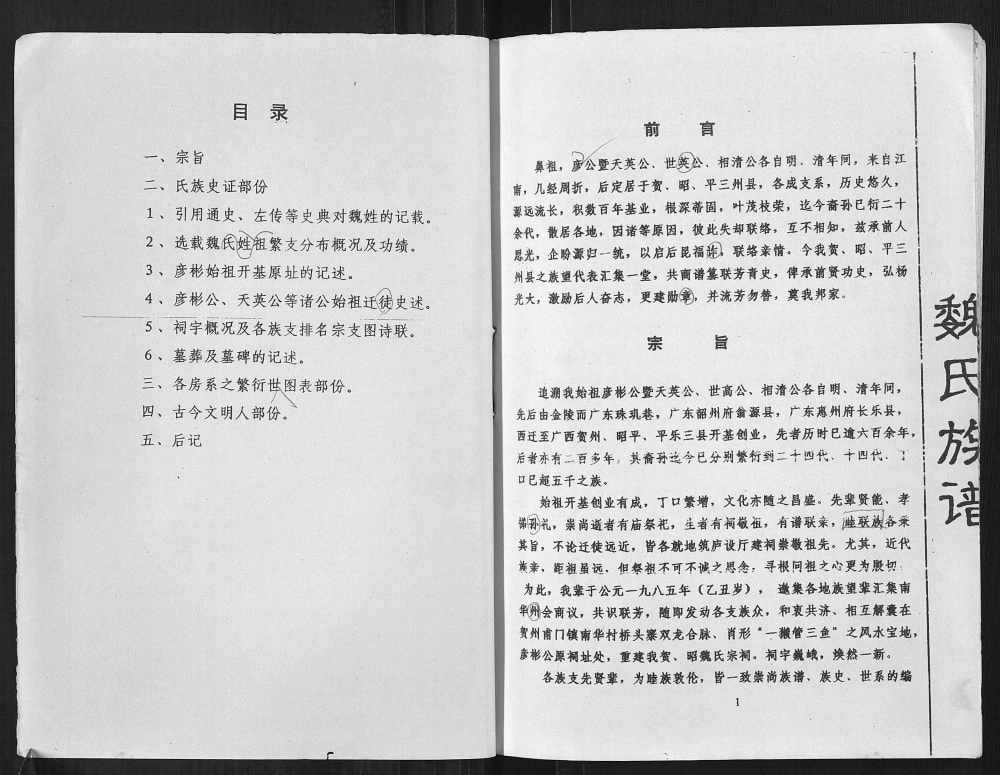 目 录
一、宗旨
二、氏族史证部份
1、引用通史、左传等史典对魏姓的记载。
2、选载魏氏姓祖繁支分布概况及功绩。
3、彦彬始祖开基原址的记述。
4、彦彬公、天英公等诸公始祖迁徒史述。
5、祠宇概况及各族支排名宗支图诗联。
6、墓葬及墓碑的记述。
三、各房系之繁衍世图表部份。
四、古今文明人部份。
五、后记
前 言
鼻祖，彦公暨天英公、世英公、相清公各自明、清年间，来自江
南，几经周折，后定居于贺、昭、平三州县，各成支系，历史悠久，
源远流长，积数百年基业，根深蒂固，叶茂枝荣，迄今裔孙已衍二十
余代，散居各地，因诸等原因，彼此失却联络，互不相知，兹承前人
恩光，企盼源归一统，以启后昆福祚，联络亲情。今我贺、昭、平三
州县之族望代表汇集一堂，共商谱纂联芳青史，俾承前贤功史，弘杨
光大，激励后人奋志，更建勋章，并流芳勿替，莫我邦家。
宗 旨
追溯我始祖彦彬公暨天英公、世高公、相清公各自明、清年间，
先后由金陵而广东珠玑巷，广东韶州府翁源县，广东惠州府长乐县，
西迁至广西贺州、昭平、平乐三县开基创业，先者历时已逾六百余年，
后者亦有二百多年，其裔孙迄今已分别繁衍到二十四代、十四代、丁
口已超五千之族。
始祖开基创业有成，丁口繁增，文化亦随之昌盛。先辈贤能、孝
孙礼，崇尚逝者有庙祭祀，生者有祠敬祖，有谱联亲，睦联族各承
其旨，不论迁徒远近，皆各就地筑庐设厅建祠崇敬祖先。尤其，近代
族亲，距祖虽远，但祭祖不可不诚之思念，寻根问祖之心更为殷切。
为此，我辈于公元一九八五年（乙丑岁），邀集各地族望辈汇集南
华州会商议，共识联芳，随即发动各支族众，和衷共济、相互解囊在
贺州甫门镇南华村桥头寨双龙合脉、肖形“一獭管三鱼”之风水宝地，
彦彬公原祠址处，重建我贺、昭魏氏宗祠。祠宇巍峨，焕然一新。
各族支先贤辈，为睦族敦伦，皆一致崇尚族谱、族史、世系的编
1
魏氏族谱